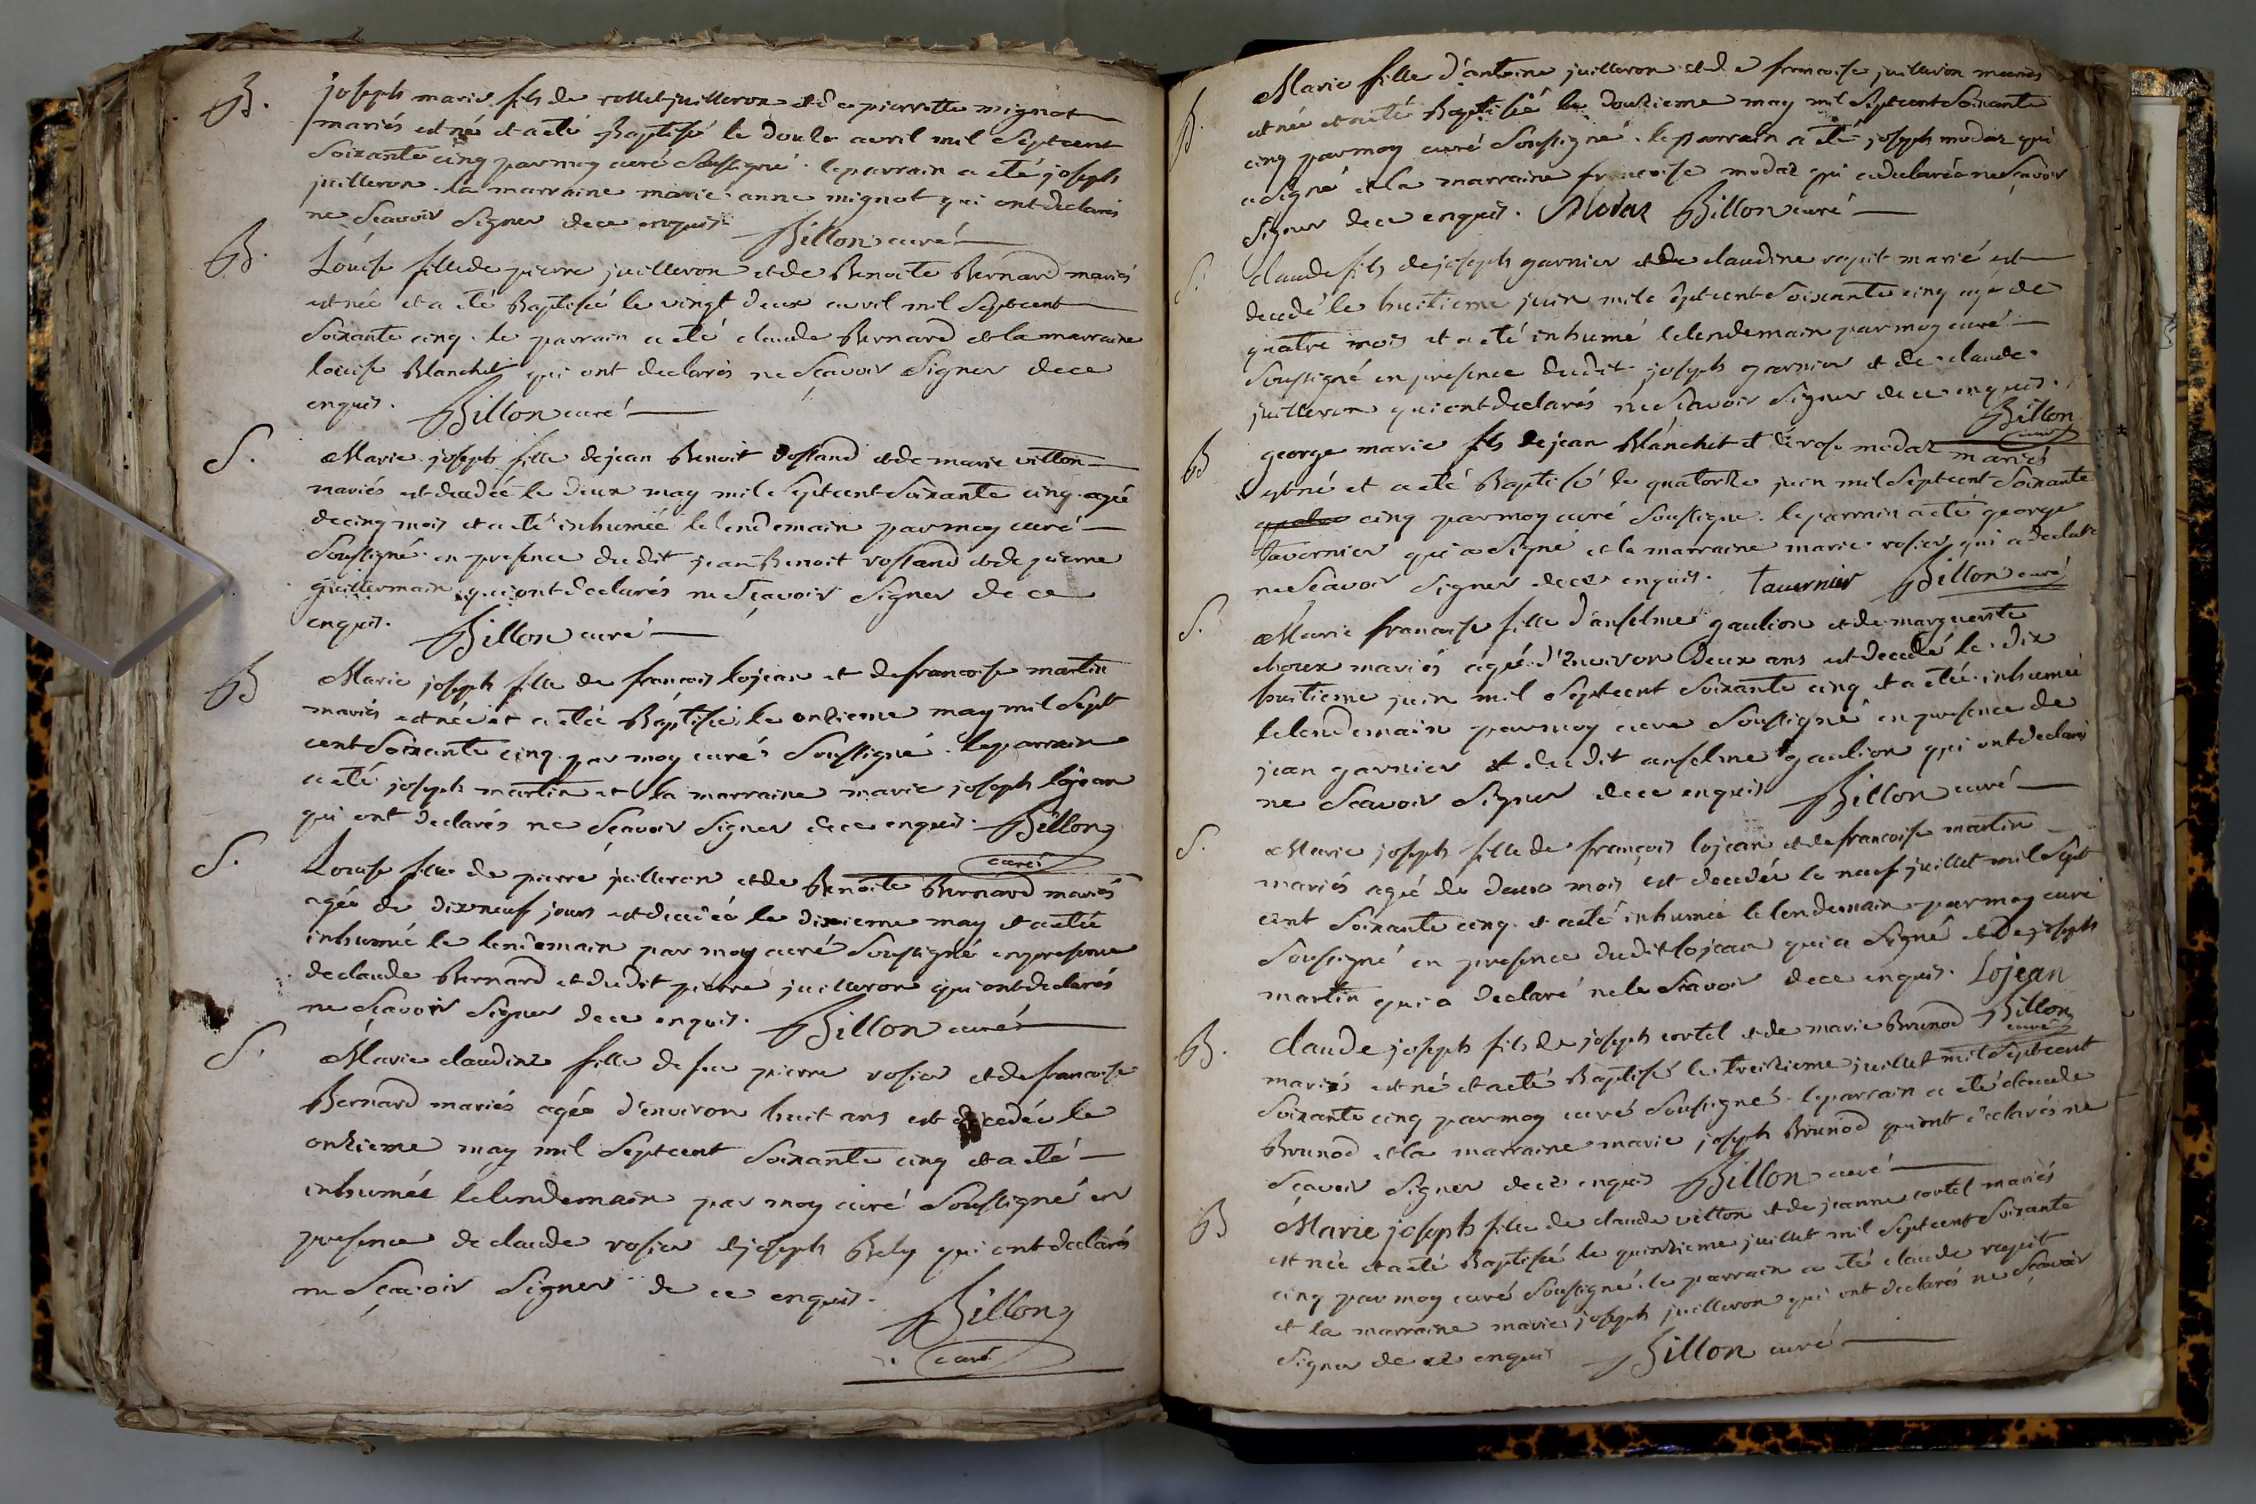 B. joseph marie fils de rollet juilleron et de pierrette mignot
mariés est né et a eté Baptisé le douze avril mil septcent
soixante cinq par moy curé soussigné. le parrain a eté joseph
juilleron. la marraine marie anne mignot qui ont declarés
ne scavoir signer de ce enquis. Billon curé
B. Louise fille de pierre juilleron et de Benoite Bernard mariés
est née et a eté Baptisée le vingt deux avril mil septcent
soixante cinq. le parrain a eté claude Bernard et la marraine
louise Blanchet qui ont declarés ne scavoir signer de ce
enquis. Billon curé
S. Marie joseph fille de jean Benoit rostand et de marie villon
mariés est decedée le deux may mil septcent soixante cinq agée
de cinq mois et a eté inhumée le lendemain par moy curé
soussigné en presence dudit jean Benoit rostand et de pierre
guillermain qui ont declarés ne sçavoir signer de ce
enquis. Billon curé
B Marie joseph fille de francois lojean et de francoise martin
mariés est née et a eté Baptisée le onzieme may mil sept
cent soixante cinq par moy curé soussigné. le parrain
a eté joseph martin et la marraine marie joseph lojean
qui ont declarés ne sçavoir signer de ce enquis. Billon
curé
S. Louise fille de pierre juilleron et de Benoite Bernard mariés
agée de dixneuf jours est decedée le dixieme may et a eté
inhumée le lendemain par moy curé soussigné en presence
de claude Bernard et dudit pierre juilleron qui ont declarés
ne sçavoir signer de ce enquis. Billon curé
S. Marie claudine fille de feu pierre rosier et de francoise
Bernard mariés agée d'environ huit ans est decedée le
onzieme may mil septcent soixante cinq et a eté
inhumée le lendemain par moy curé soussigné en
presence de claude rosier et joseph Bely qui ont declarés
ne sçavoir signer de ce enquis.
Billon
curé
B. Marie fille d'antoine juilleron et de francoise juilleron mariés
est née et a eté Baptisée le douzieme may mil septcent soixante
cinq par moy curé soussigné. le parrain a eté joseph modaz qui
a signé et la marraine francoise modaz qui a declaré ne scavoir
signer de ce enquis. Modaz Billon curé
S. claude fils de joseph garnier et de claudine rapit marié est
decedé le huitieme juin mil septcent soixante cinq age de
quatre mois et a eté inhumé le lendemain par moy curé
soussigné en presence dudit joseph garnier et de claude
juilleron qui ont declarés ne sçavoir signer de ce enquis.
Billon
curé
B george marie fils de jean Blanchet et de rose modaz mariés
est né et a eté Baptisé le quatorze juin mil septcent soixante
cinq par moy curé soussigné. le parrain a eté george
tavernier qui a signé et la marraine marie rosier qui a declaré
ne scavoir signer de ce enquis. tavernier Billon curé
S. Marie francoise fille d'anselme gaulion et de marguerite
choux mariés agée d'environ deux ans est decedé le dix
huitieme juin mil septcent soixante cinq et a eté inhumée
le lendemain par moy curé soussigné en presence de
jean garnier et dudit anselme gaulion qui ont declarés
ne scavoir signer de ce enquis Billon curé
S. Marie joseph fille de françois lojean et de francoise martin
mariés agée de deux mois est decedée le neuf juillet mil sept
cent soixante cinq et a eté inhumée le lendemain par moy curé
soussigné en presence dudit lojean qui a signé et de joseph
martin qui a declaré ne le scavoir de ce enquis. Lojean
Billon
curé
B. claude joseph fils de joseph cortel et de marie Brunod
mariés est né et a eté Baptisé le treizieme juillet mil septcent
soixante cinq par moy curé soussigné. le parrain a eté claude
Brunod et la marraine marie joseph Brunod qui ont declarés ne
scavoir signer de ce enquis Billon curé
B Marie joseph fille de claude villon et de jeanne cortel mariés
est née et a eté Baptisée le quinzieme juillet mil septcent soixante
cinq par moy curé soussigné. le parrain a eté claude rapit
et la marraine marie joseph juilleron qui ont declarés ne scavoir
signer de ce enquis Billon curé